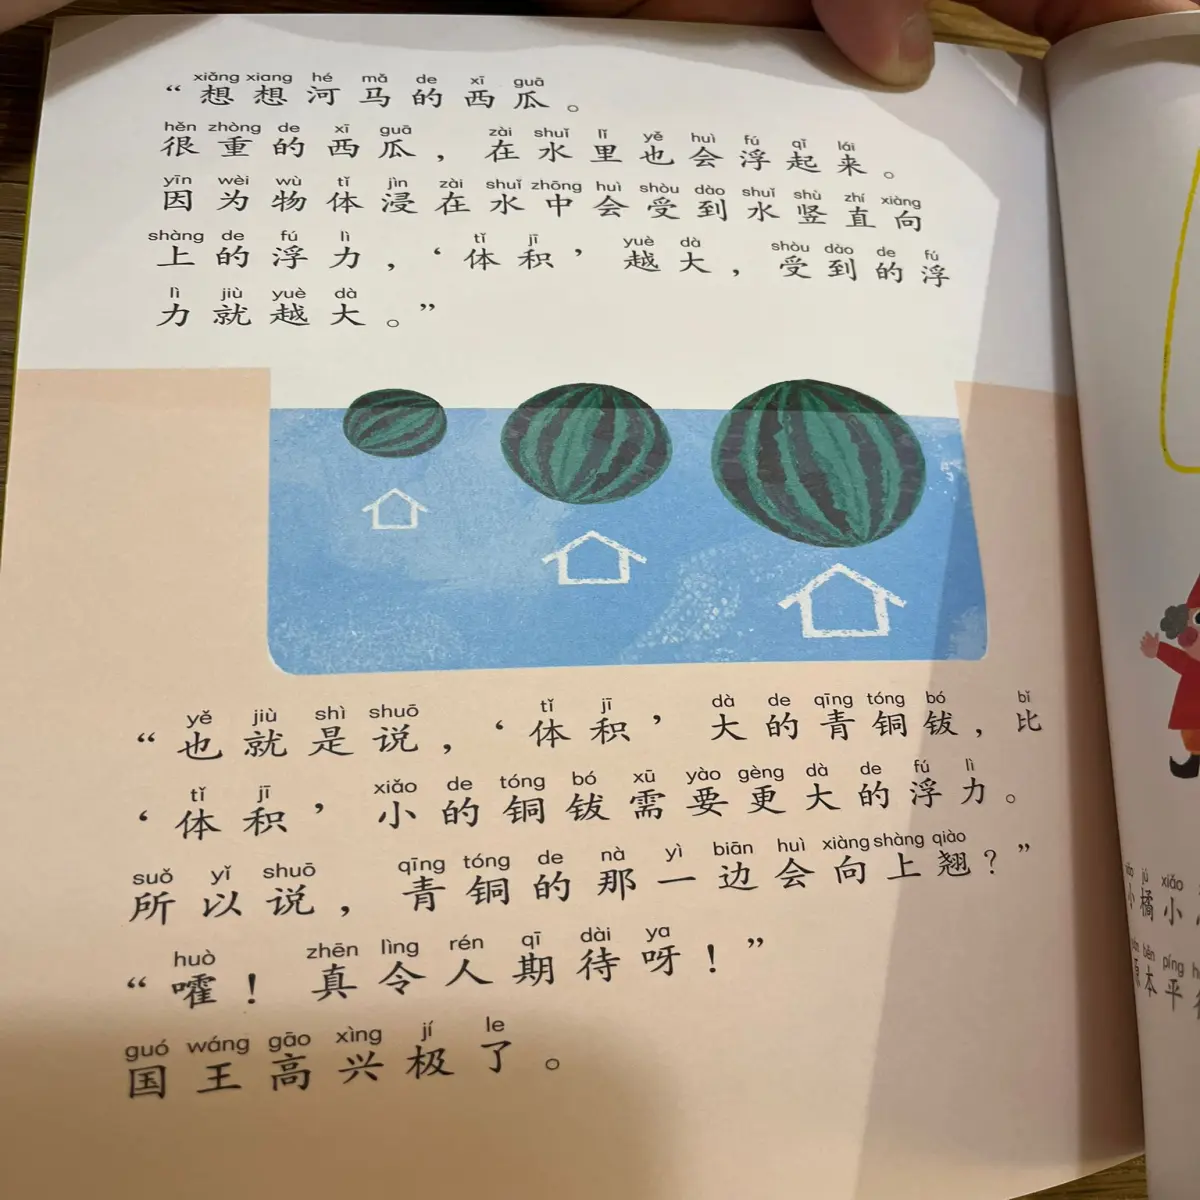 xiǎng xiang hé mǎ de xī guā
“想想河马的西瓜。
hěn zhòng de xī guā zài shuǐ lǐ yě huì fú qǐ lái
很重的西瓜，在水里也会浮起来。
yīn wèi wù tǐ jìn zài shuǐ zhōng huì shòu dào shuǐ shù zhí xiàng
因为物体浸在水中会受到水竖直向
shàng de fú lì tǐ jī yuè dà shòu dào de fú
上的浮力，‘体积’越大，受到的浮
lì jiù yuè dà
力就越大。”
yě jiù shì shuō tǐ jī dà de qīng tóng bó bǐ
“也就是说，‘体积’大的青铜钹，比
tǐ jī xiǎo de tóng bó xū yào gèng dà de fú lì
‘体积’小的铜钹需要更大的浮力。
suǒ yǐ shuō qīng tóng de nà yì biān huì xiàng shàng qiào
所以说，青铜的那一边会向上翘？”
huò zhēn lìng rén qī dài ya
“嚯！真令人期待呀！”
guó wáng gāo xìng jí le
国王高兴极了。
jú xiǎo
小橘小
běn píng
本平